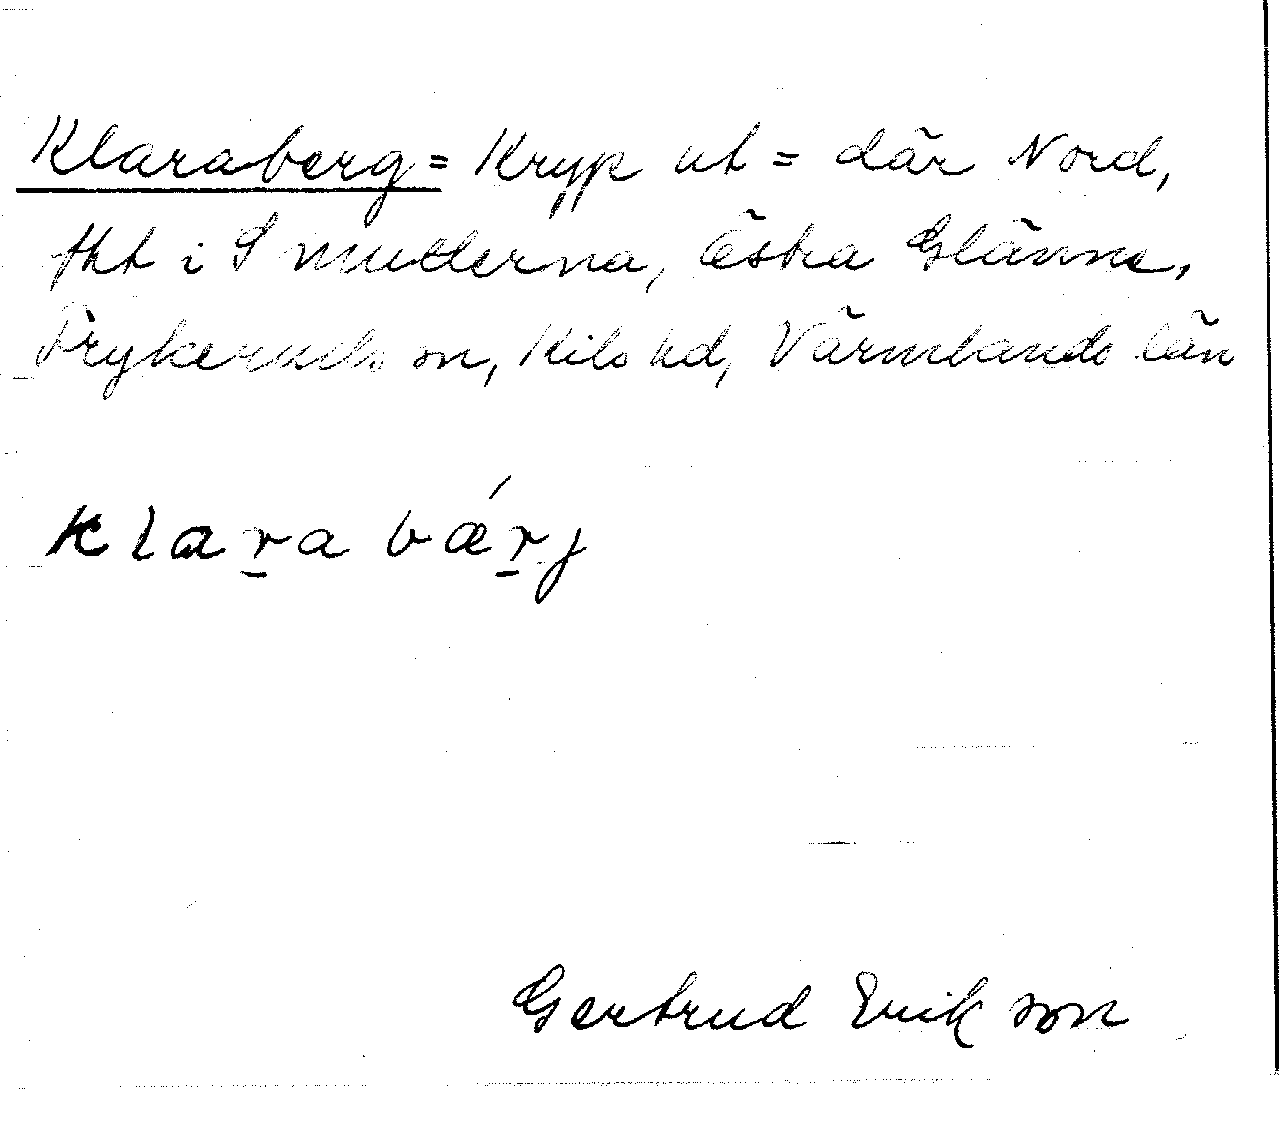 Klaraberg = Kryp ut = där Nord,
tht i Smutterna, Östra Glänne,
Frykeruds sn, Kils hd, Värmlands län
klaṟa bæ´ṟj
Gertrud Erikson